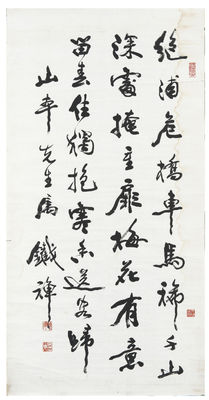 絕浦危橋車馬稀千山
深處掩圭扉梅花有意
留春住獨抱寒香送客歸
山車先生屬 鐵禪